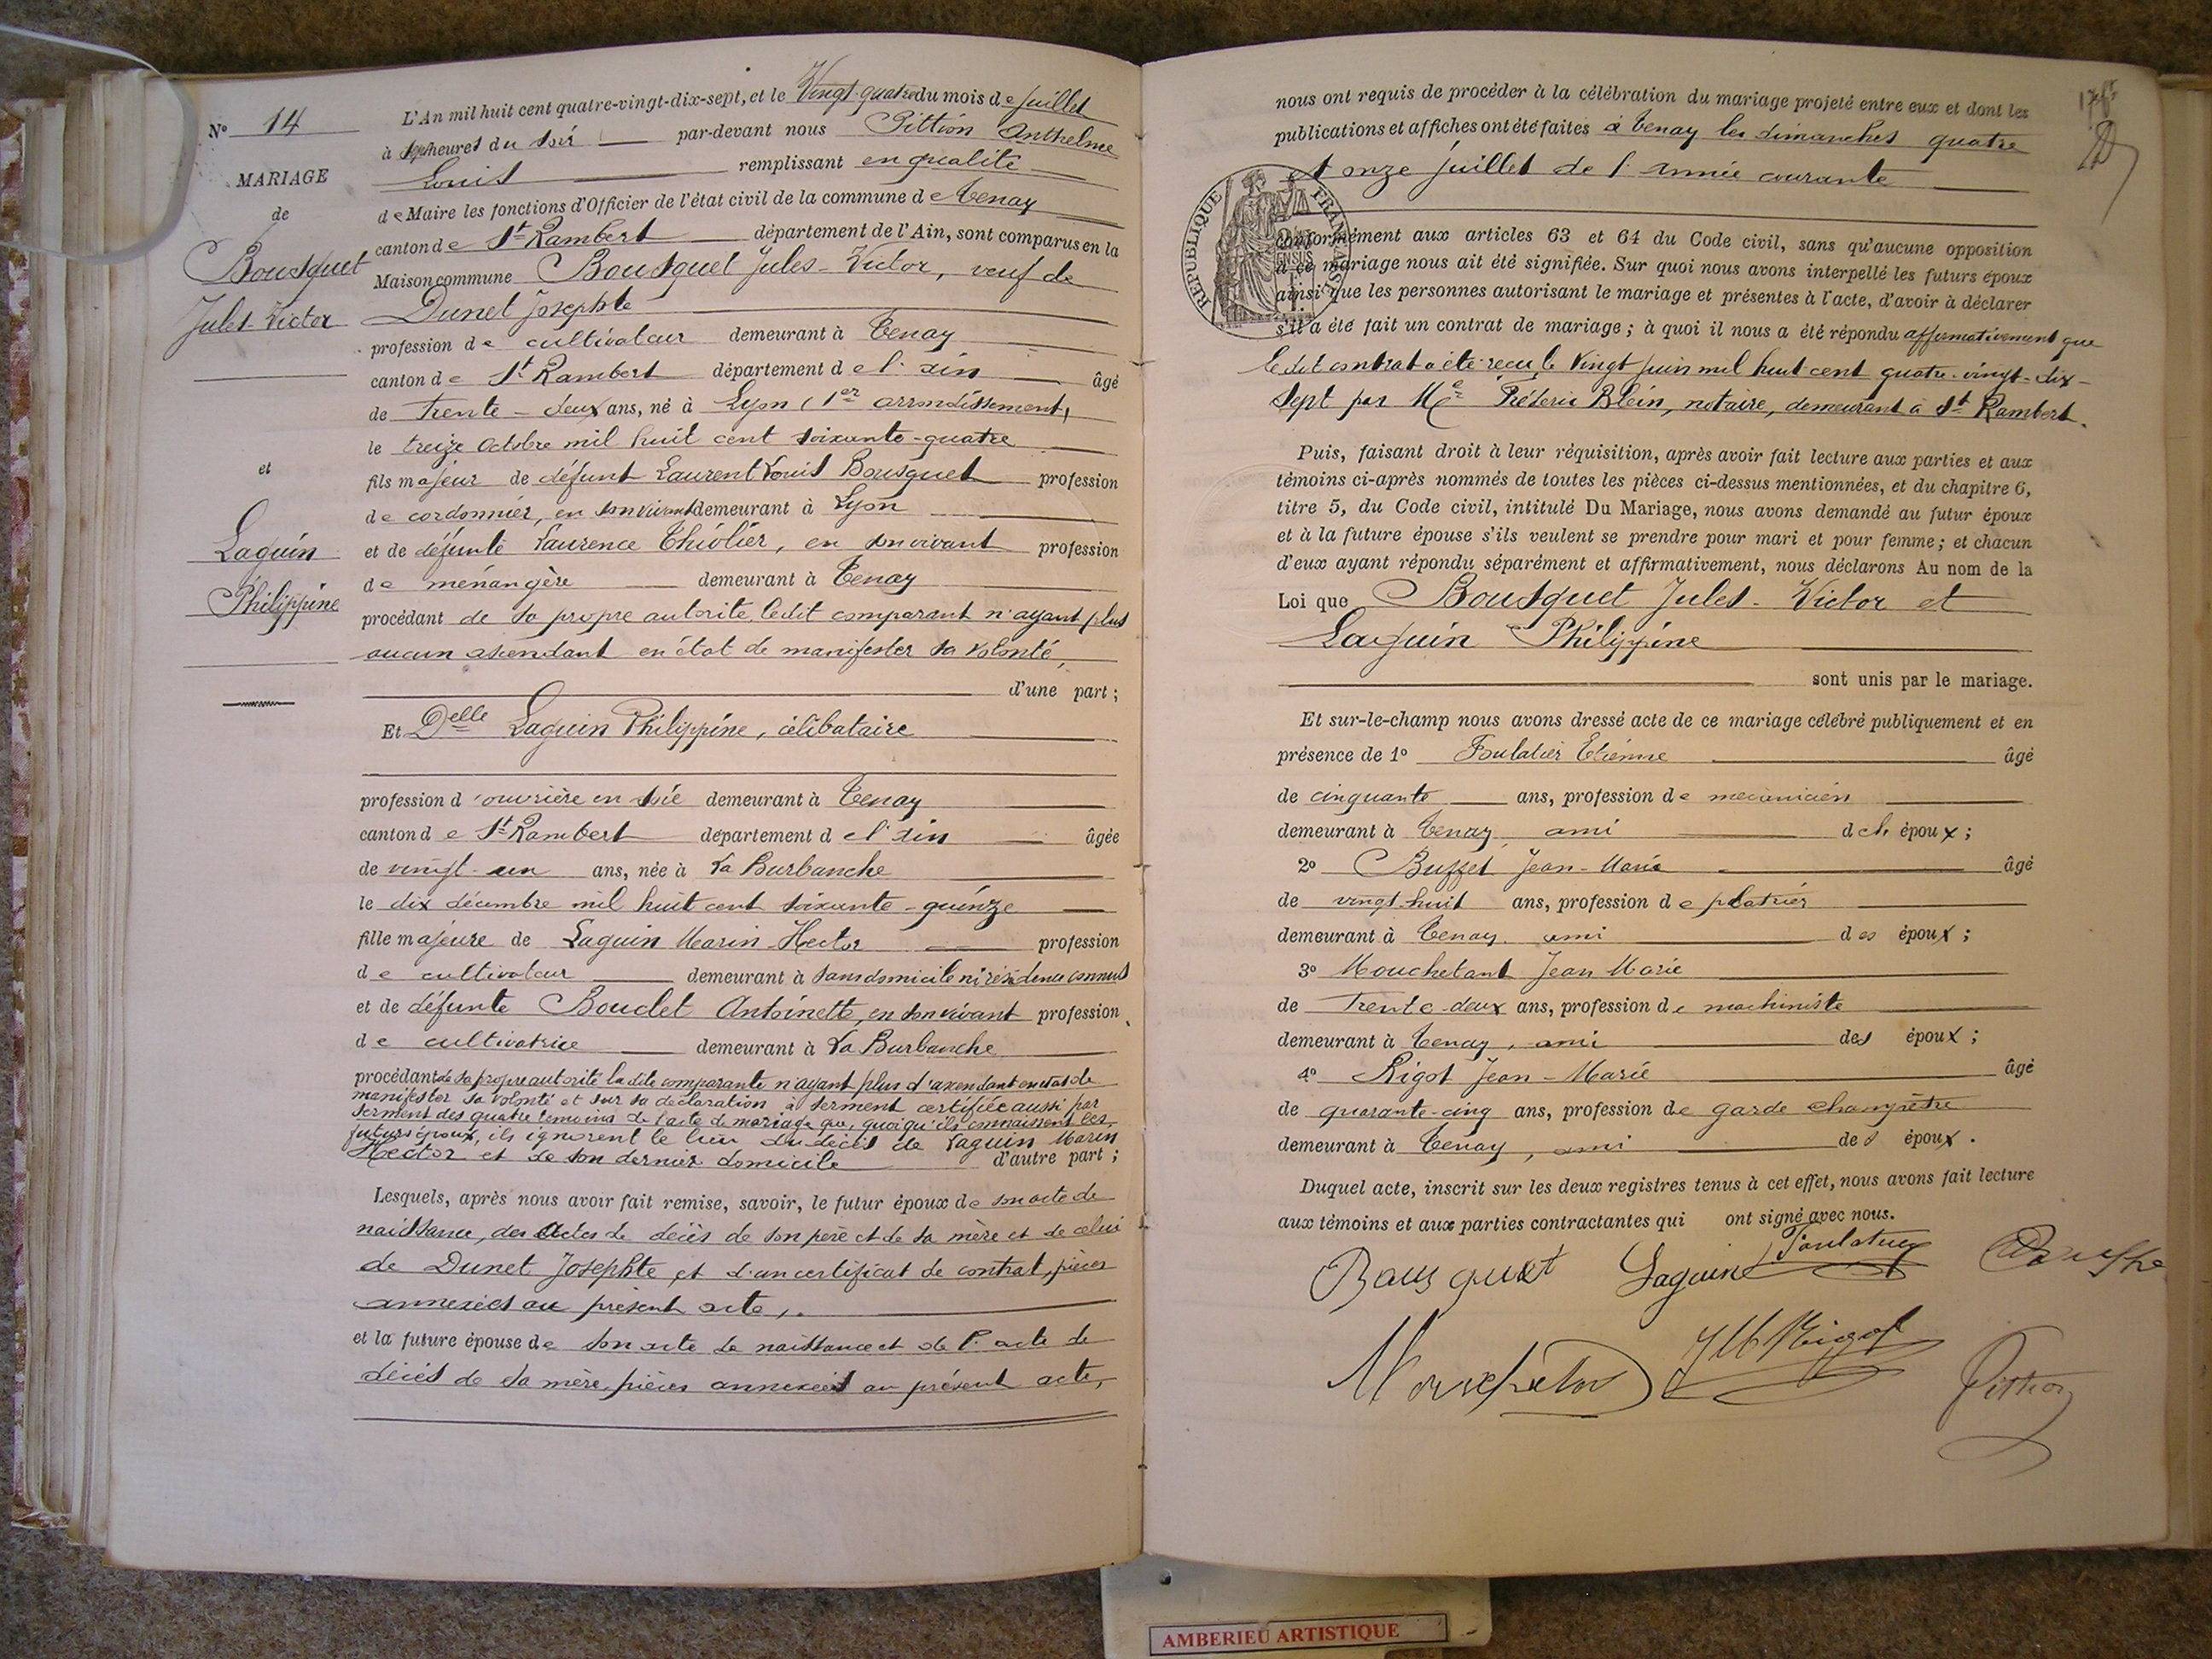 N° 14
MARIAGE
de
Bousquet
Jules-Victor
et
Laguin
Philippine
L'An mil huit cent quatre-vingt-dix-sept, et le Vingt-quatre du mois de juillet
à sept heures du soir par-devant nous Pittion Anthelme
Louis remplissant en qualité
de Maire les fonctions d'Officier de l'état civil de la commune de Tenay
canton de St Rambert département de l'Ain, sont comparus en la
Maison commune Bousquet Jules-Victor, veuf de
Dunet Josephte
profession de cultivateur demeurant à Tenay
canton de St Rambert département de l'ain âgé
de trente-deux ans, né à Lyon (1er arrondissement)
le treize octobre mil huit cent soixante-quatre
fils majeur de défunt Laurent Louis Bousquet profession
de cordonnier, en son vivant demeurant à Lyon
et de défunte Laurence Thiólier, en son vivant profession
de ménangère demeurant à Tenay
procédant de sa propre autorité, ledit comparant n'ayant plus
aucun ascendant en état de manifester sa volonté,
d'une part ;
Et Delle Laguin Philippine, célibataire
profession d'ouvrière en soie demeurant à Tenay
canton de St Rambert département de l'ain âgée
de vingt-un ans, née à La Burbanche
le dix décembre mil huit cent soixante-quinze
fille majeure de Laguin Marin-Hector profession
de cultivateur demeurant à sans domicile ni résidence connus
et de défunte Bouclet Antoinette, en son vivant profession
de cultivatrice demeurant à La Burbanche
procédant de sa propre autorité la dite comparante n'ayant plus d'ascendant en état de
manifester sa volonté et sur sa déclaration à serment certifiée aussi par
serment des quatre témoins de l'acte de mariage que, quoiqu'ils connaissent les
futurs époux, ils ignorent le lieu du décès de Laguin Marin
Hector et de son dernier domicile d'autre part ;
Lesquels, après nous avoir fait remise, savoir, le futur époux de son acte de
naissance, des actes de décès de son père et de sa mère et de celui
de Dunet Josephte et d'un certificat de contrat, pièces
annexées au présent acte,
et la future épouse de son acte de naissance et de l'acte de
décès de sa mère, pièces annexées au présent acte,
nous ont requis de procéder à la célébration du mariage projeté entre eux et dont les
publications et affiches ont été faites à Tenay les dimanches quatre
et onze juillet de l'année courante
REPUBLIQUE FRANÇAISE
conformément aux articles 63 et 64 du Code civil, sans qu'aucune opposition
à ce mariage nous ait été signifiée. Sur quoi nous avons interpellé les futurs époux
ainsi que les personnes autorisant le mariage et présentes à l'acte, d'avoir à déclarer
s'il a été fait un contrat de mariage ; à quoi il nous a été répondu affirmativement que
ledit contrat a été reçu le vingt juin mil huit cent quatre-vingt-dix-
sept par Me Fréderic Blein, notaire, demeurant à St Rambert.
Puis, faisant droit à leur réquisition, après avoir fait lecture aux parties et aux
témoins ci-après nommés de toutes les pièces ci-dessus mentionnées, et du chapitre 6,
titre 5, du Code civil, intitulé Du Mariage, nous avons demandé au futur époux
et à la future épouse s'ils veulent se prendre pour mari et pour femme ; et chacun
d'eux ayant répondu séparément et affirmativement, nous déclarons Au nom de la
Loi que Bousquet Jules-Victor et
Laguin Philippine
sont unis par le mariage.
Et sur-le-champ nous avons dressé acte de ce mariage célébré publiquement et en
présence de 1° Foulatier Etienne âgé
de cinquante ans, profession de mécanicien
demeurant à Tenay, ami des époux ;
2° Buffet Jean-Marie âgé
de vingt-huit ans, profession de platrier
demeurant à Tenay. ami des époux ;
3° Mouchetant Jean Marie
de trente-deux ans, profession de machiniste
demeurant à Tenay, ami des époux ;
4° Rigot Jean-Marie âgé
de quarante-cinq ans, profession de garde champêtre
demeurant à Tenay, ami des époux.
Duquel acte, inscrit sur les deux registres tenus à cet effet, nous avons fait lecture
aux témoins et aux parties contractantes qui ont signé avec nous.
Bousquet Laguine
JM Rigot
Pittion
AMBERIEU ARTISTIQUE